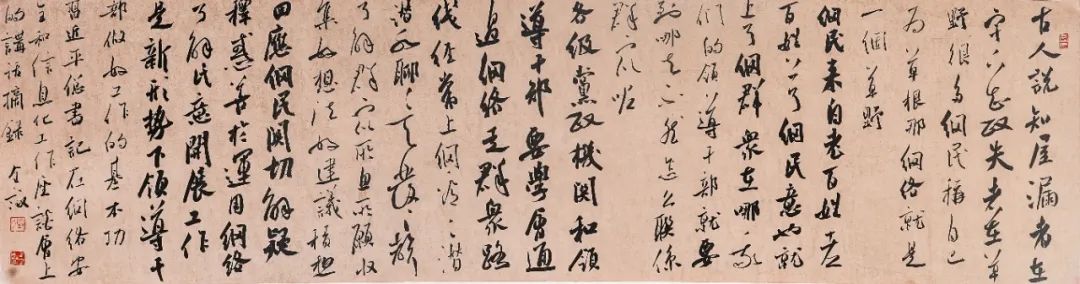 古人說知屋漏者在
宇下知政失者在草
野很多網民稱自己
為草根那網絡就是
一個草野
網民來自老百姓老
百姓上了網民意也就
上了網群衆在哪兒我
們的領導干部就要
到哪兒去不然怎么聯係
群众呢
各級黨政機関和領
導干部要學會通
過網絡走群衆路
线經常上網看看潜
潜水聊聊天發發聲
了解群众所思所願收
集好想法好建議積极
回應網民関切解疑
釋惑善於運用網絡
了解民意開展工作
是新形勢下領導干
部做好工作的基本功
習近平總書記在網絡安
全和信息化工作座談會上
的講話摘録